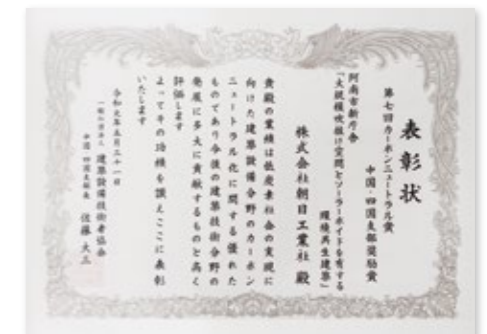 表彰状
第七回カーボンニュートラル賞
中国・四国支部奨励賞
阿南市新庁舎
「大規模吹抜け空間とソーラーボイドを有する
環境共生建築」
株式会社朝日工業社 殿
貴殿の業績は低炭素社会の実現に
向けた建築設備分野のカーボン
ニュートラル化に関する優れた
ものであり今後の建築設備技術分野の
発展に多大に貢献するものと高く
評価します
よってその功績を讃えここに表彰
いたします
令和元年五月三十一日
一般社団法人 建築設備技術者協会
中国・四国支部長 佐藤 大三